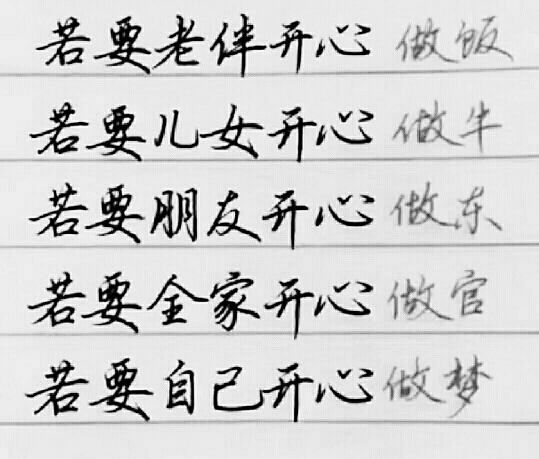 若要老伴开心 做饭
若要儿女开心 做牛
若要朋友开心 做东
若要全家开心 做官
若要自己开心 做梦